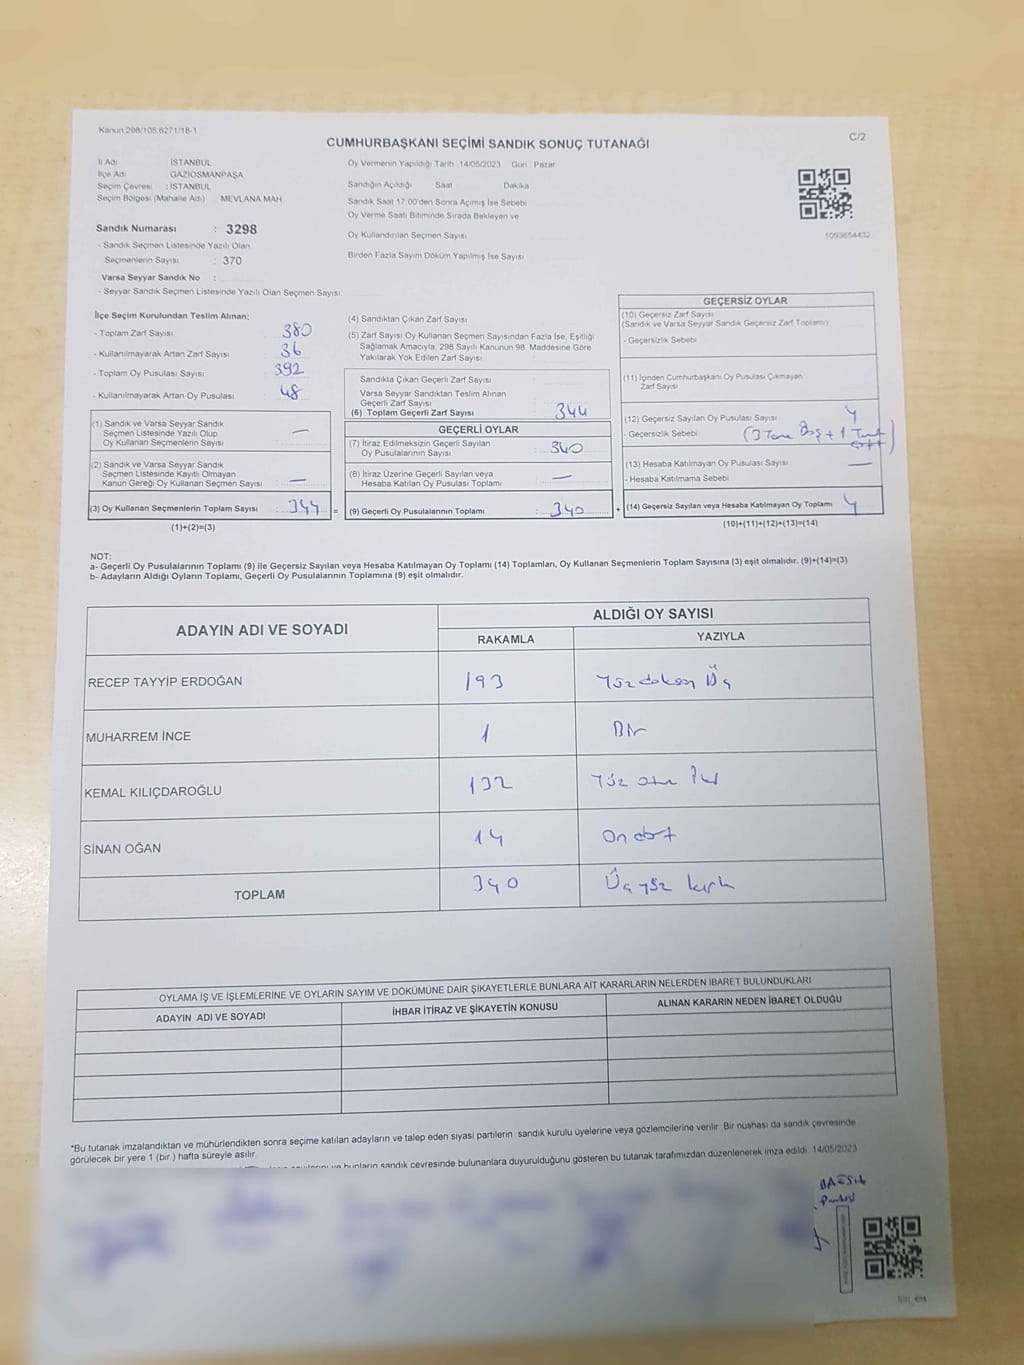 Kanun:298/105;6271/18-1
C/2
CUMHURBAŞKANI SEÇİMİ SANDIK SONUÇ TUTANAĞI
İl Adı İSTANBUL
İlçe Adı GAZİOSMANPAŞA
Seçim Çevresi : İSTANBUL
Seçim Bölgesi (Mahalle Adı) MEVLANA MAH
Sandık Numarası : 3298
- Sandık Seçmen Listesinde Yazılı Olan
Seçmenlerin Sayısı : 370
Varsa Seyyar Sandık No :
- Seyyar Sandık Seçmen Listesinde Yazılı Olan Seçmen Sayısı
Oy Vermenin Yapıldığı Tarih :14/05/2023 Gün : Pazar
Sandığın Açıldığı Saat Dakika
Sandık Saat 17:00'den Sonra Açılmış İse Sebebi
Oy Verme Saati Bitiminde Sırada Bekleyen ve
Oy Kullandırılan Seçmen Sayısı
Birden Fazla Sayım Döküm Yapılmış İse Sayısı
1093654432
İlçe Seçim Kurulundan Teslim Alınan;
- Toplam Zarf Sayısı 380
- Kullanılmayarak Artan Zarf Sayısı 36
- Toplam Oy Pusulası Sayısı 392
- Kullanılmayarak Artan Oy Pusulası 48
(1) Sandık ve Varsa Seyyar Sandık
Seçmen Listesinde Yazılı Olup
Oy Kullanan Seçmenlerin Sayısı —
(2) Sandık ve Varsa Seyyar Sandık
Seçmen Listesinde Kayıtlı Olmayan
Kanun Gereği Oy Kullanan Seçmen Sayısı —
(3) Oy Kullanan Seçmenlerin Toplam Sayısı 344 =
(1)+(2)=(3)
(4) Sandıktan Çıkan Zarf Sayısı
(5) Zarf Sayısı Oy Kullanan Seçmen Sayısından Fazla İse, Eşitliği
Sağlamak Amacıyla, 298 Sayılı Kanunun 98. Maddesine Göre
Yakılarak Yok Edilen Zarf Sayısı
Sandıkta Çıkan Geçerli Zarf Sayısı
Varsa Seyyar Sandıktan Teslim Alınan
Geçerli Zarf Sayısı
(6) Toplam Geçerli Zarf Sayısı 344
GEÇERLİ OYLAR
(7) İtiraz Edilmeksizin Geçerli Sayılan
Oy Pusulalarının Sayısı 340
(8) İtiraz Üzerine Geçerli Sayılan veya
Hesaba Katılan Oy Pusulası Toplamı —
(9) Geçerli Oy Pusulalarının Toplamı 340 +
GEÇERSİZ OYLAR
(10) Geçersiz Zarf Sayısı
(Sandık ve Varsa Seyyar Sandık Geçersiz Zarf Toplamı)
- Geçersizlik Sebebi
(11) İçinden Cumhurbaşkanı Oy Pusulası Çıkmayan
Zarf Sayısı
(12) Geçersiz Sayılan Oy Pusulası Sayısı 4
- Geçersizlik Sebebi (3 Tane Boş + 1
(13) Hesaba Katılmayan Oy Pusulası Sayısı —
- Hesaba Katılmama Sebebi
(14) Geçersiz Sayılan veya Hesaba Katılmayan Oy Toplamı 4
(10)+(11)+(12)+(13)=(14)
NOT:
a- Geçerli Oy Pusulalarının Toplamı (9) ile Geçersiz Sayılan veya Hesaba Katılmayan Oy Toplamı (14) Toplamları, Oy Kullanan Seçmenlerin Toplam Sayısına (3) eşit olmalıdır. (9)+(14)=(3)
b- Adayların Aldığı Oyların Toplamı, Geçerli Oy Pusulalarının Toplamına (9) eşit olmalıdır.
ADAYIN ADI VE SOYADI
ALDIĞI OY SAYISI
RAKAMLA YAZIYLA
RECEP TAYYİP ERDOĞAN 193 Yüzdoksan Üç
MUHARREM İNCE 1 Bir
KEMAL KILIÇDAROĞLU 132 Yüz otuz İki
SİNAN OĞAN 14 On dört
TOPLAM 340 Üç yüz kırk
OYLAMA İŞ VE İŞLEMLERİNE VE OYLARIN SAYIM VE DÖKÜMÜNE DAİR ŞİKAYETLERLE BUNLARA AİT KARARLARIN NELERDEN İBARET BULUNDUKLARI
ADAYIN ADI VE SOYADI İHBAR İTİRAZ VE ŞİKAYETİN KONUSU ALINAN KARARIN NEDEN İBARET OLDUĞU
*Bu tutanak imzalandıktan ve mühürlendikten sonra seçime katılan adayların ve talep eden siyasi partilerin sandık kurulu üyelerine veya gözlemcilerine verilir. Bir nüshası da sandık çevresinde
görülecek bir yere 1 (bir ) hafta süreyle asılır.
bunların sandık çevresinde bulunanlara duyurulduğunu gösteren bu tutanak tarafımızdan düzenlenerek imza edildi. 14/05/2023